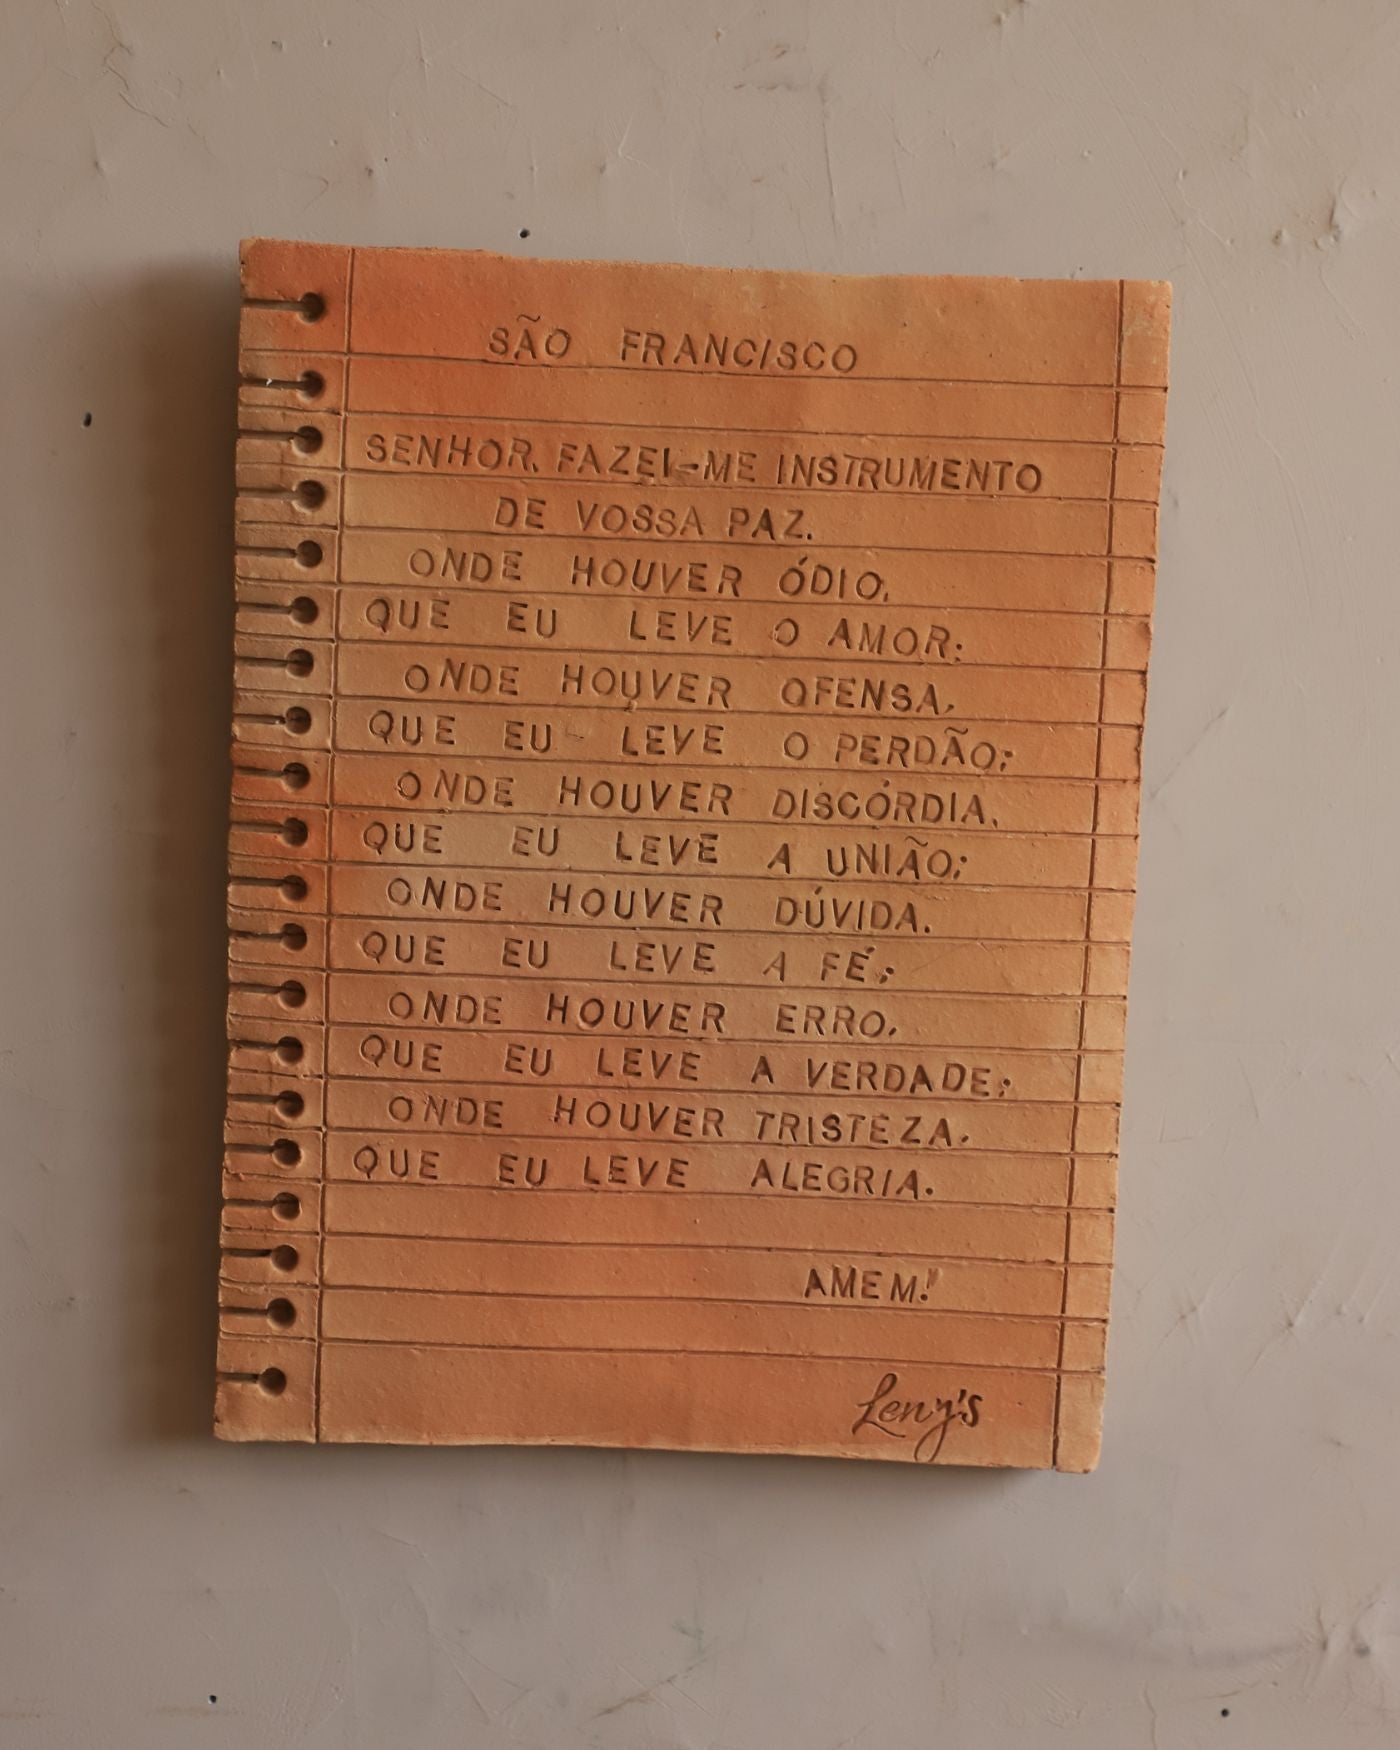 SÃO FRANCISCO
SENHOR, FAZEI-ME INSTRUMENTO
DE VOSSA PAZ.
ONDE HOUVER ÓDIO,
QUE EU LEVE O AMOR;
ONDE HOUVER OFENSA,
QUE EU LEVE O PERDÃO;
ONDE HOUVER DISCÓRDIA,
QUE EU LEVE A UNIÃO;
ONDE HOUVER DÚVIDA,
QUE EU LEVE A FÉ;
ONDE HOUVER ERRO,
QUE EU LEVE A VERDADE;
ONDE HOUVER TRISTEZA,
QUE EU LEVE ALEGRIA.
AMEM!
Leny's